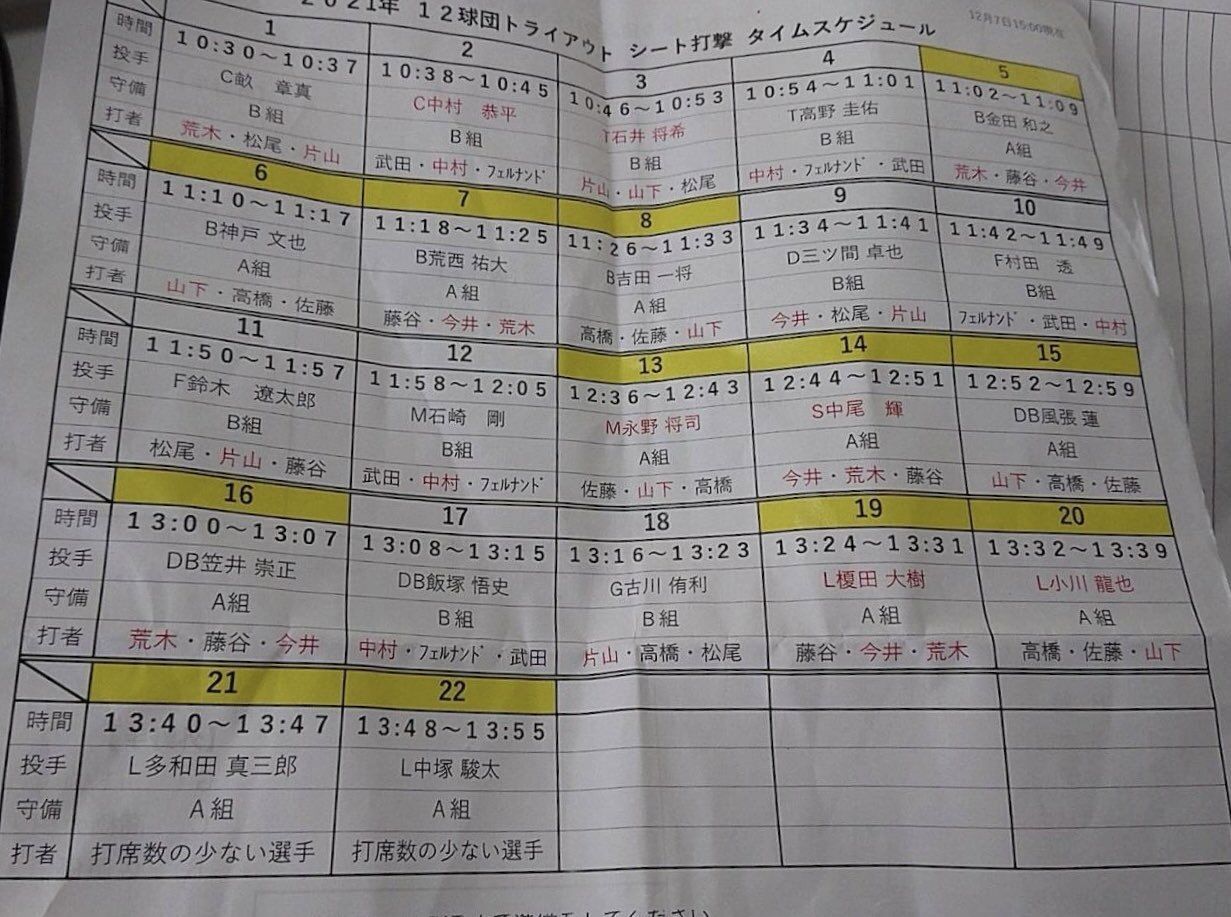 2021年 12球団トライアウト シート打撃 タイムスケジュール
12月7日15:00現在
1 2 3 4 5
時間 10:30～10:37 10:38～10:45 10:46～10:53 10:54～11:01 11:02～11:09
投手 C畝 章真 C中村 恭平 T石井 将希 T高野 圭佑 B金田 和之
守備 B組 B組 B組 B組 A組
打者 荒木・松尾・片山 武田・中村・フェルナンド 片山・山下・松尾 中村・フェルナンド・武田 荒木・藤谷・今井
6 7 8 9 10
時間 11:10～11:17 11:18～11:25 11:26～11:33 11:34～11:41 11:42～11:49
投手 B神戸 文也 B荒西 祐大 B吉田 一将 D三ツ間 卓也 F村田 透
守備 A組 A組 A組 B組 B組
打者 山下・高橋・佐藤 藤谷・今井・荒木 高橋・佐藤・山下 今井・松尾・片山 フェルナンド・武田・中村
11 12 13 14 15
時間 11:50～11:57 11:58～12:05 12:36～12:43 12:44～12:51 12:52～12:59
投手 F鈴木 遼太郎 M石崎 剛 M永野 将司 S中尾 輝 DB風張 蓮
守備 B組 B組 A組 A組 A組
打者 松尾・片山・藤谷 武田・中村・フェルナンド 佐藤・山下・高橋 今井・荒木・藤谷 山下・高橋・佐藤
16 17 18 19 20
時間 13:00～13:07 13:08～13:15 13:16～13:23 13:24～13:31 13:32～13:39
投手 DB笠井 崇正 DB飯塚 悟史 G古川 侑利 L榎田 大樹 L小川 龍也
守備 A組 B組 B組 A組 A組
打者 荒木・藤谷・今井 中村・フェルナンド・武田 片山・高橋・松尾 藤谷・今井・荒木 高橋・佐藤・山下
21 22
時間 13:40～13:47 13:48～13:55
投手 L多和田 真三郎 L中塚 駿太
守備 A組 A組
打者 打席数の少ない選手 打席数の少ない選手